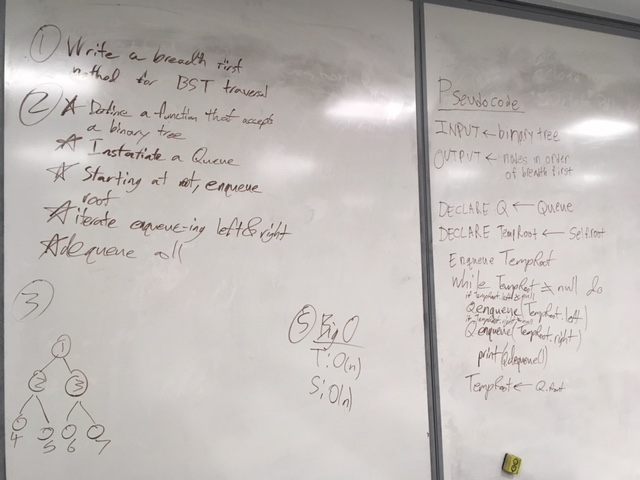 ① Write a breadth first
method for BST traversal
② ☆ Define a function that accepts
a binary tree
☆ Instatiate a Queue
☆ Starting at root, enqueue
root
☆ iterate enqueue-ing left & right
☆ dequeue all
③
1
2 3
4 5 6 7
⑤ Big O
T: O(n)
S: O(n)
Pseudocode
INPUT ← binary tree
OUTPUT ← nodes in order
of breath first
DECLARE Q ← Queue
DECLARE TempRoot ← Self.root
Enqueue TempRoot
while TempRoot ≠ null do
Q enqueue(TempRoot.left)
Q enqueue(TempRoot.right)
print(Q dequeue())
TempRoot ← Q.